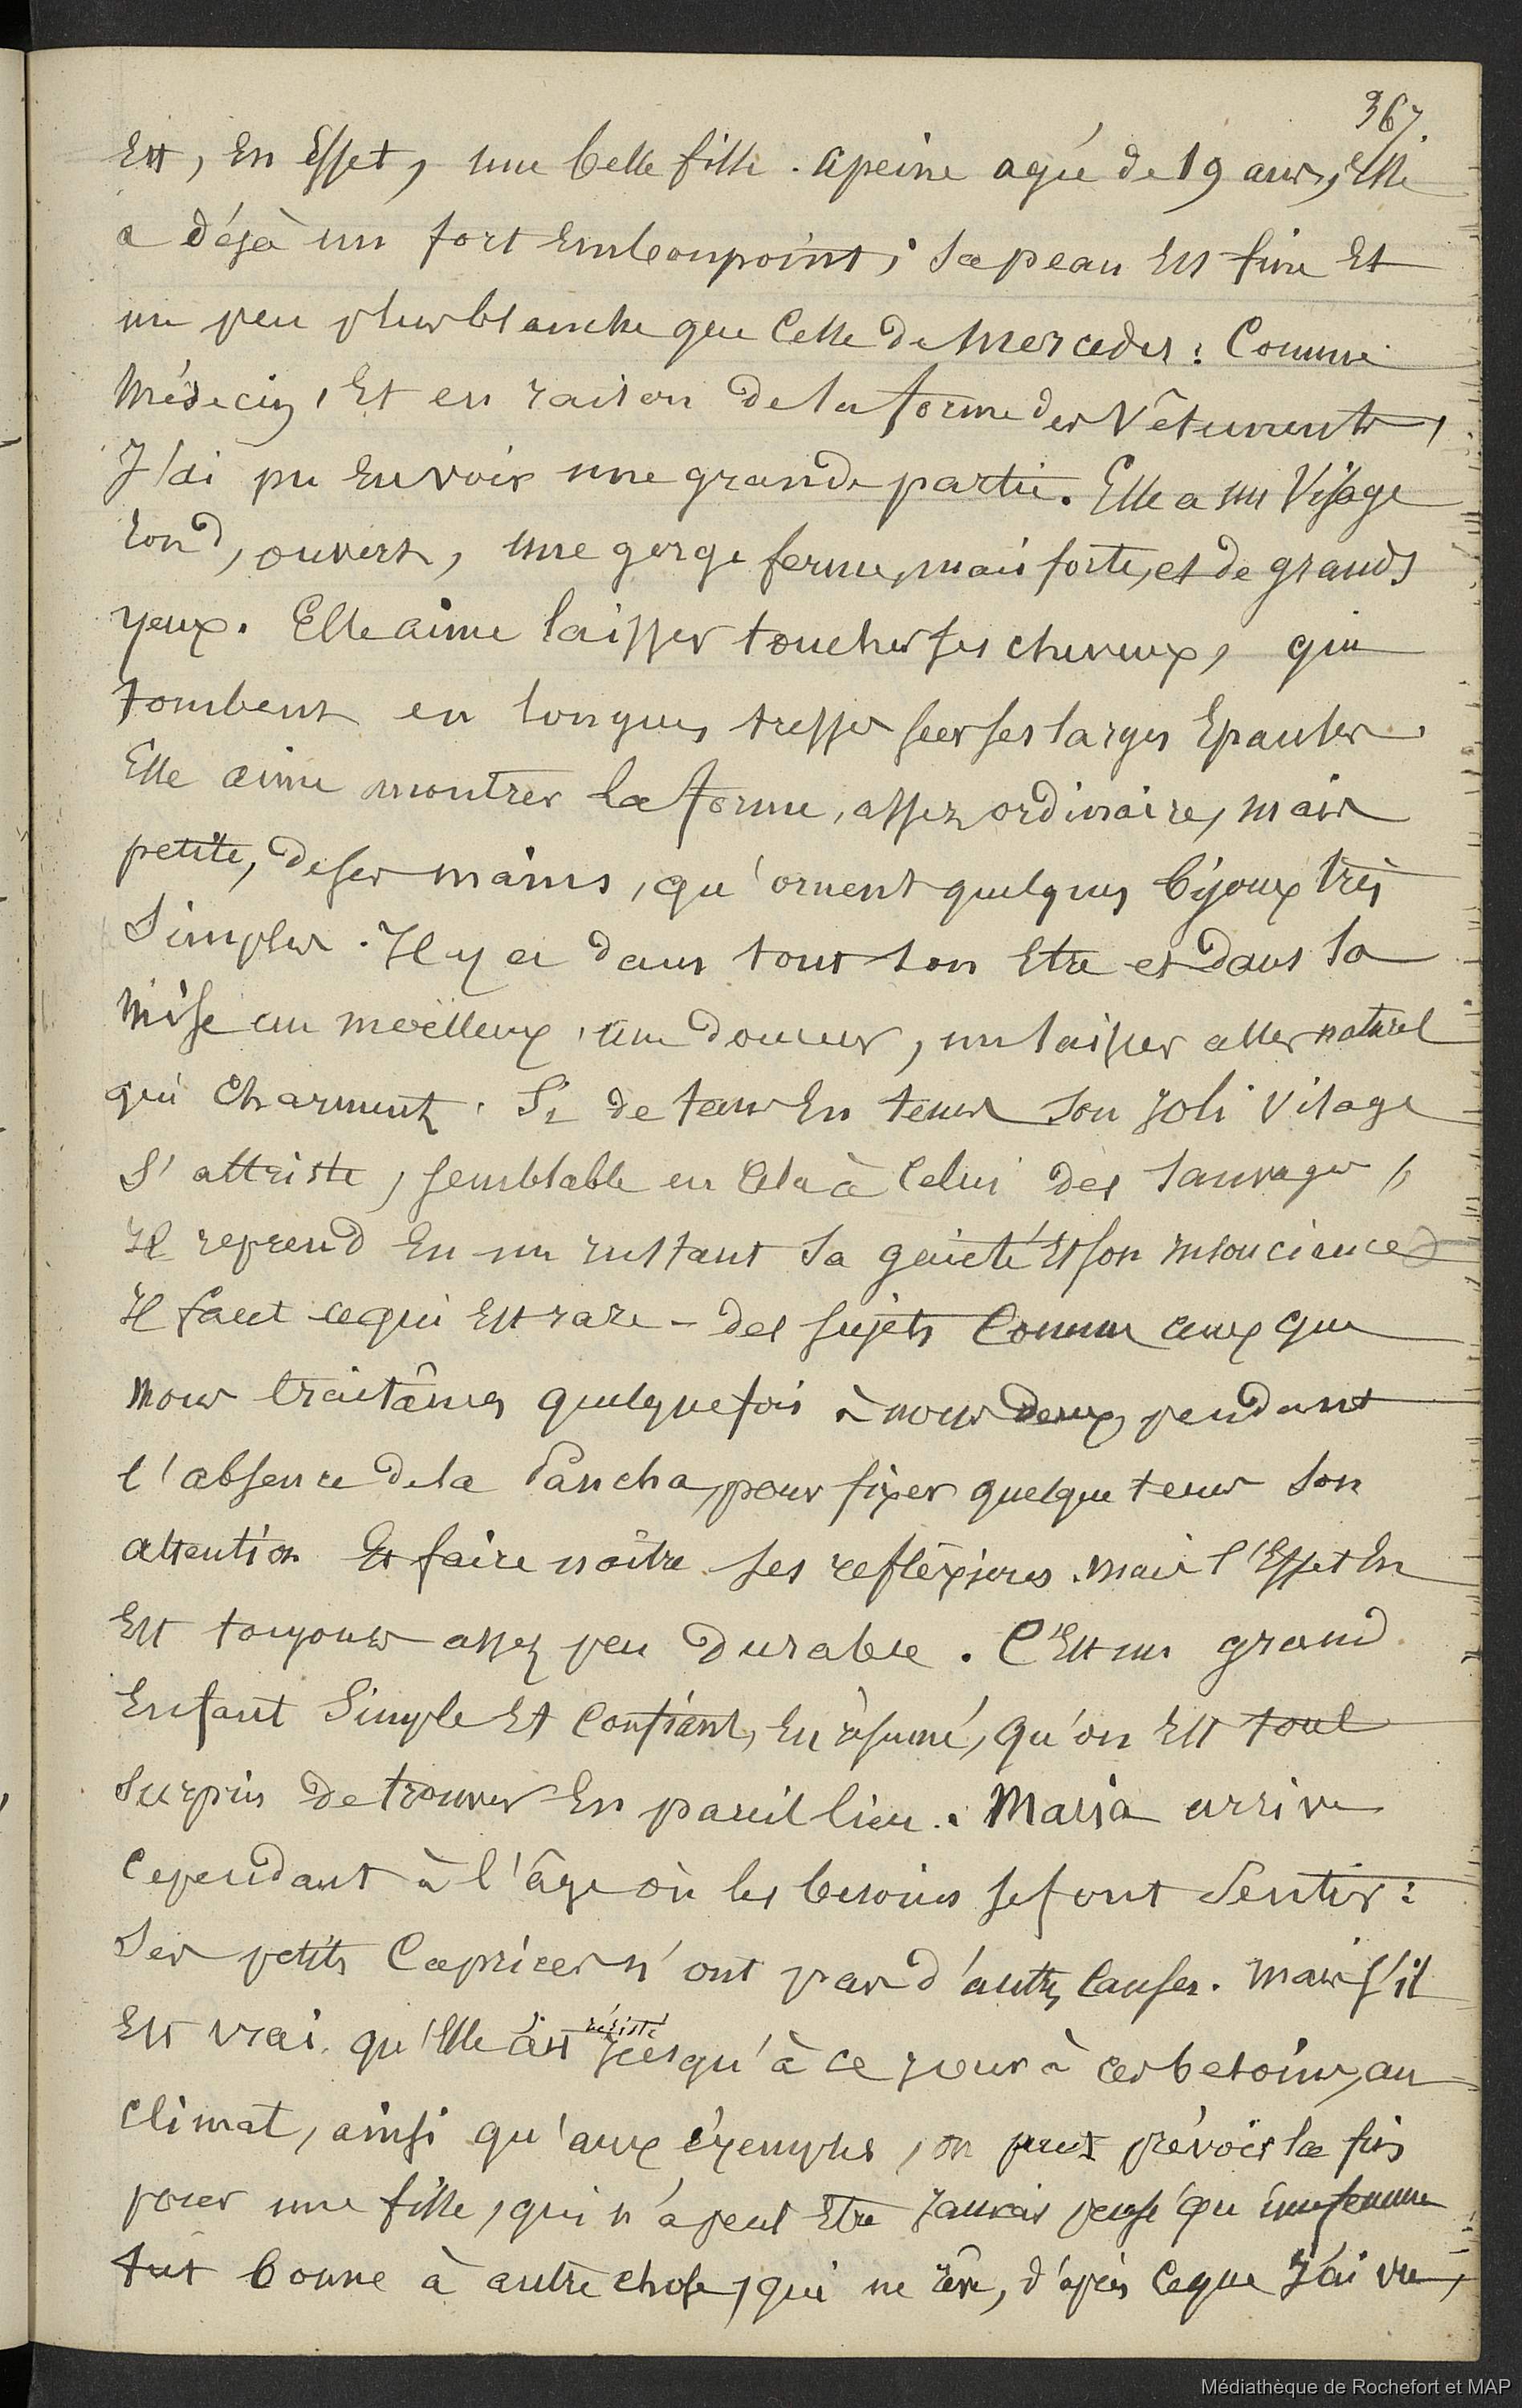 367.
Est, En Effet, une belle fille. Apeine agée de 19 ans, Elle
a déjà un fort Embonpoint; Sa peau Est fine Et
un peu plus blanche que Celle de Mercedes: Comme
Médecin, Et en raison de la forme des Vêtements,
J'ai pu En voir une grande partie. Elle a un Visage
rond, ouvert, une gorge ferme, mais forte, et de grands
yeux. Elle aime laisser toucher ses cheveux, qui
tombent en longues tresses sur ses larges Epaules.
Elle aime montrer la forme, assez ordinaire, mais
petite, de ses mains, qu'ornent quelques bijoux très
Simples. Il y a dans tout son Etre et dans sa
Mise un moëlleux, une douceur, un laisser aller naturel
qui Charment. Si de tems En tems son joli visage
S'attriste, semblable en Cela à Celui des Sauvages,
Il reprend En un instant sa gaieté Et son insouciance
Il faut ce qui Est rare - des sujets Comme ceux que
nous traitâmes quelquefois à nous deux, pendant
l'absence de la Pancha, pour fixer quelque tems son
attention Et faire naître ses refléxions. Mais l'Effet En
Est toujours assez peu durable. C'Est un grand
Enfant Simple Et Confiant, En résumé, qu'on Est tout
surpris de trouver En pareil lieu. Maria arrive
Cependant à l'âge où les besoins se font Sentir:
Ses petits Caprices n'ont pas d'autres Causes. Mais s'il
Est vrai qu'Elle ait résisté jusqu'à ce jour à ces besoins, au
Climat, ainsi qu'aux éxemples, on peut prévoir la fin
pour une fille, qui n'a peut Etre jamais pensé qu'une femme
fut bonne à autre chose, qui ne rêve, d'après Ceque J'ai vu,